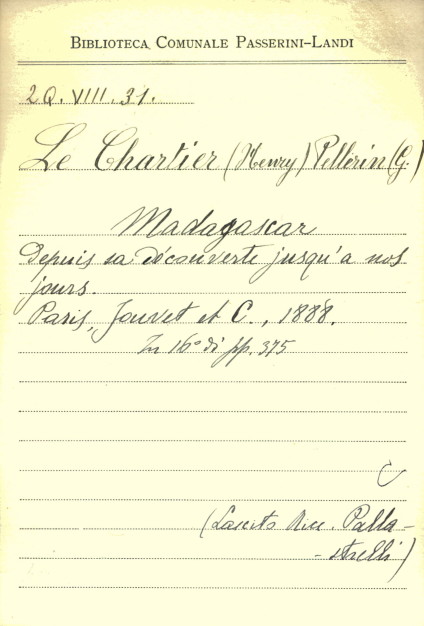 BIBLIOTECA COMUNALE PASSERINI-LANDI
2Q. VIII. 31.
Le Chartier (Henry) Pellerin (G.)
Madagascar
Depuis sa découverte jusqu'a nos
jours.
Paris, Jouvet et C., 1888.
In 16° di pp. 375
(Lascito Palla-
-strelli)